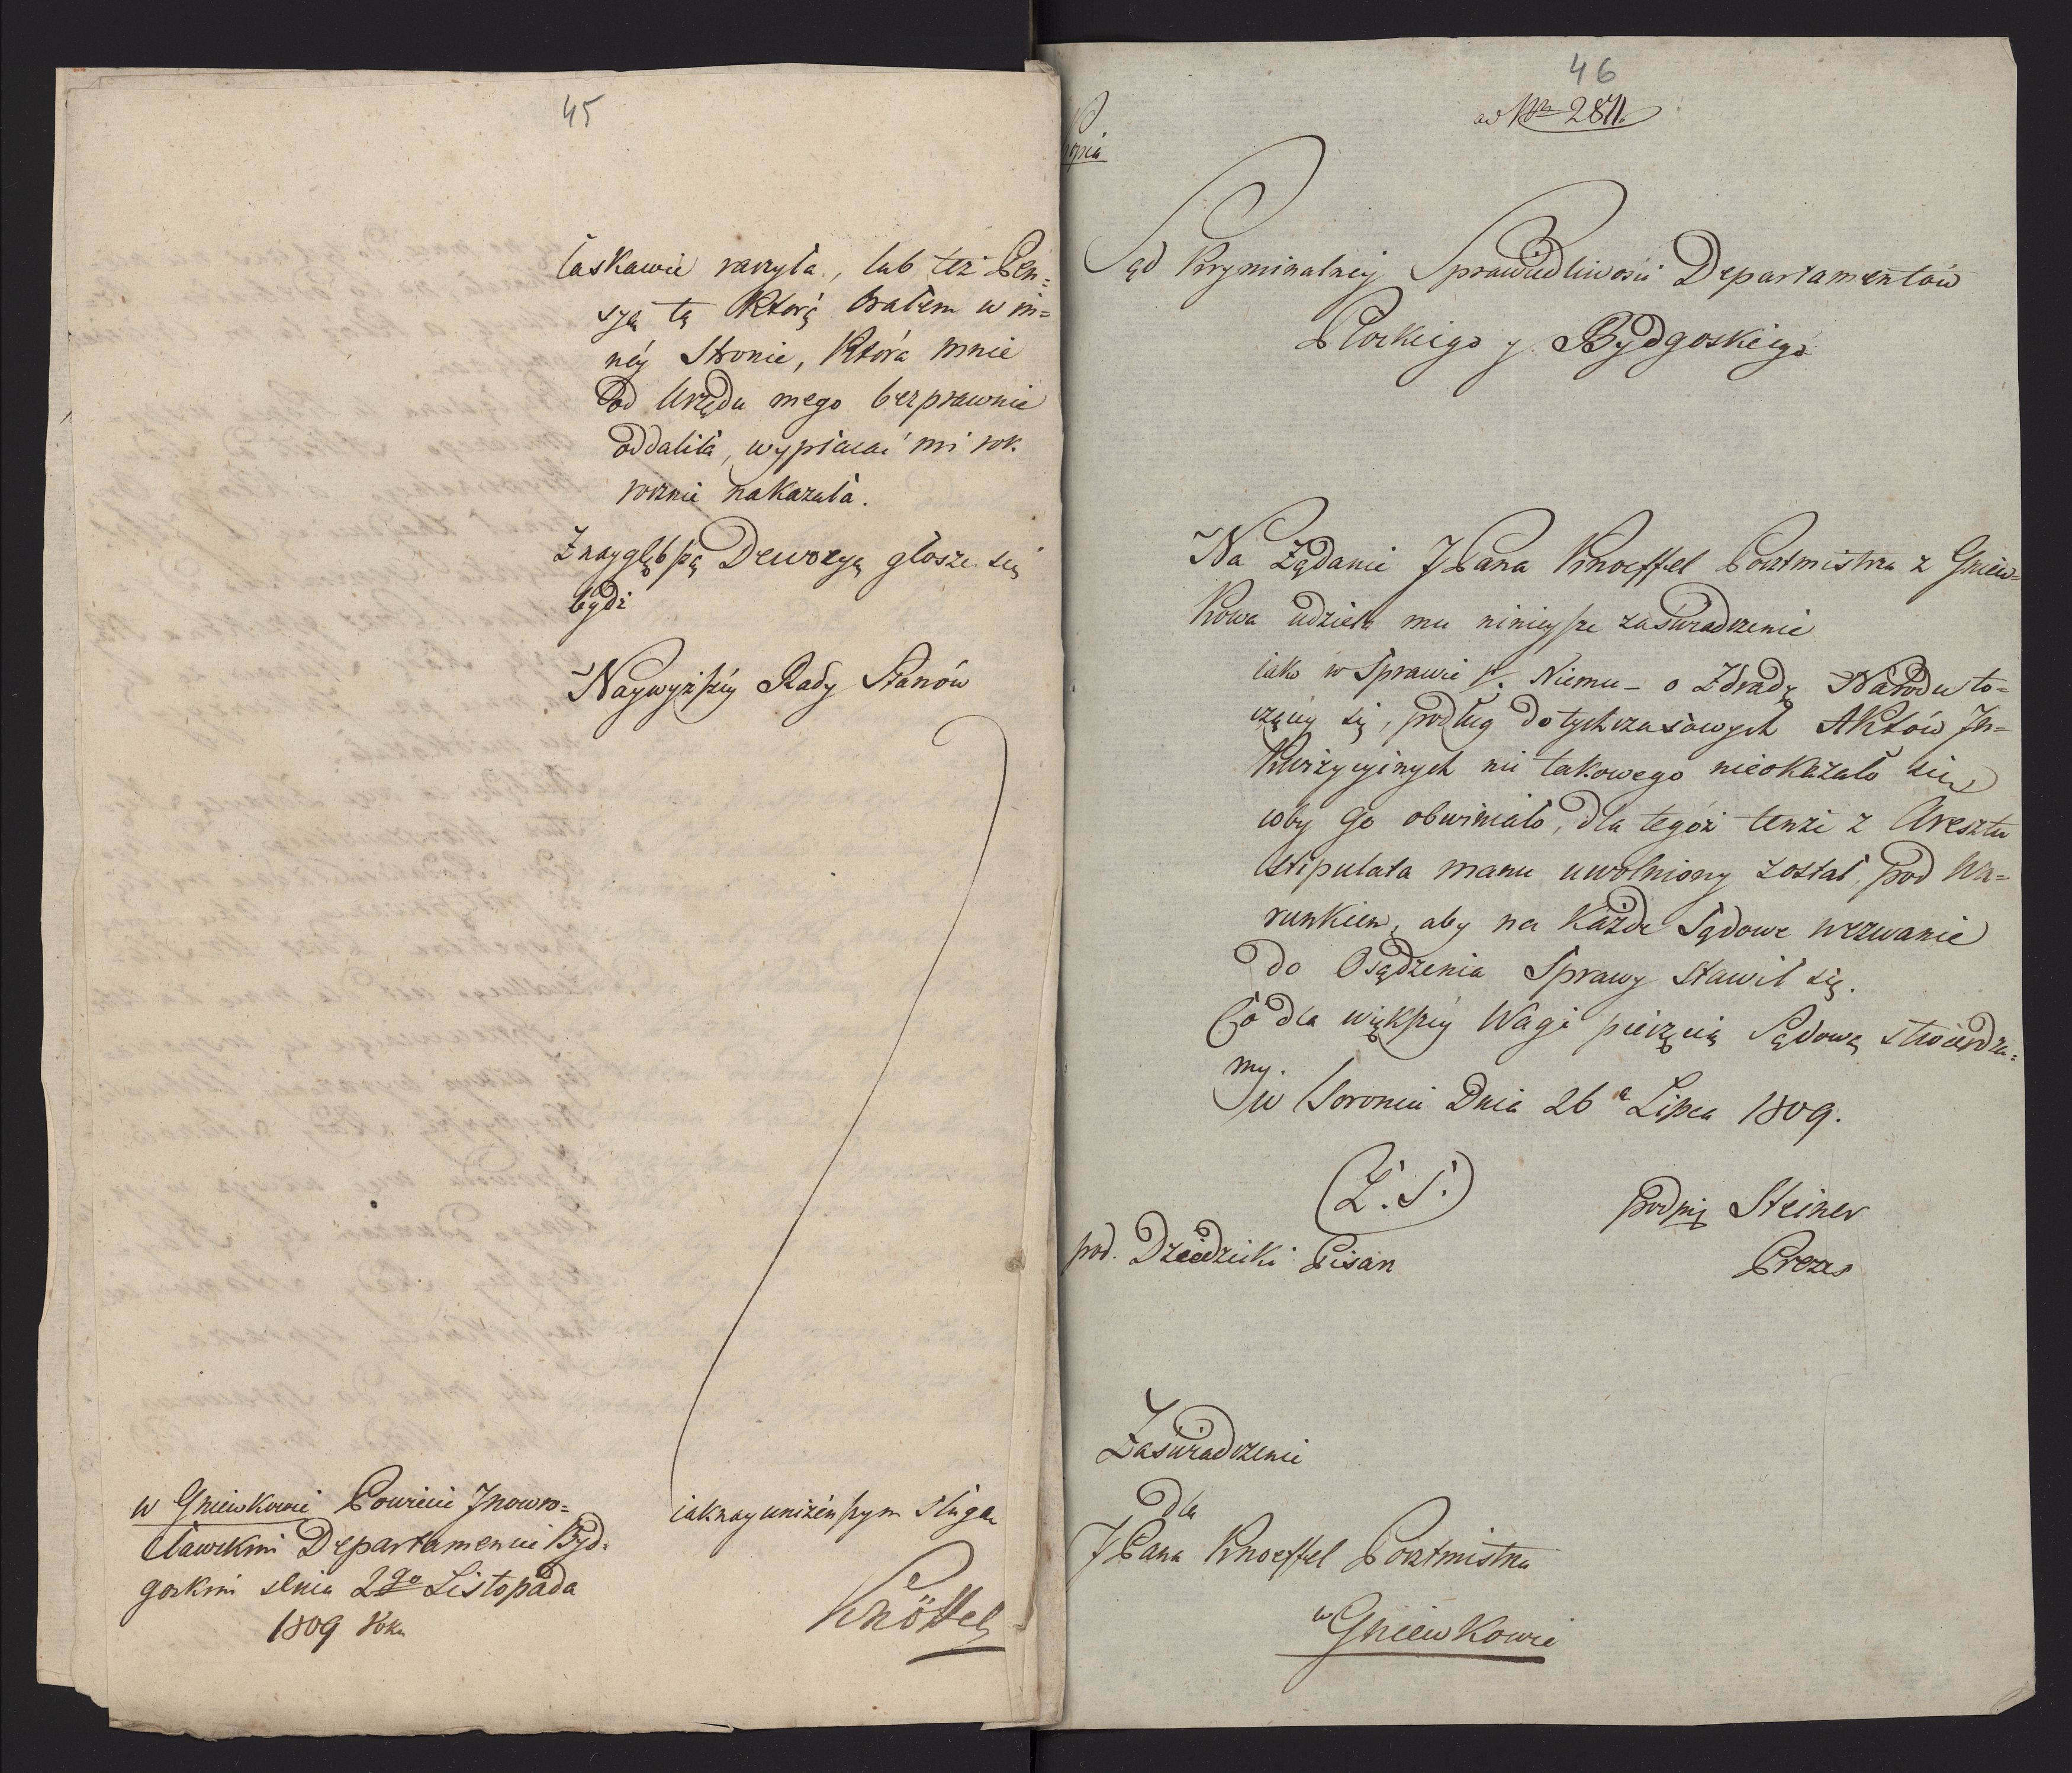 45
łaskawie raczyła, lub też Pen=
syą tą którą brałem w in=
néy Stronie, która mnie
od Urzędu mego bezprawnie
oddaliła, wypłacać mi rok
rocznie nakazała.
Z nayglębszą Dewocyą głosze się
bydź
Naywyższéy Rady Stanów
iak nayuniżeńszym Sługa
Knöffel
w Gniewkowie Powiecie Inowro=
cławskim Departamencie Byd=
goskim dnia 2go Listopada
1809 Roku
46
ad Nro 2811.
Kopia
Sąd Kryminalnéy Sprawiedliwości Departamentów
Płockiego y Bydgoskiego
Na Żądanie JPana Knoeffel Pocztmistrza z Gniew=
kowa udziela mu ninieysze zaświadczenie
iako w Sprawie p. Niemu – o Zdradę Narodu to=
czącey się, podług dotychczasowych Aktów In=
kwizycyinych nic takowego nieokazało się
coby go obwiniało, dla tegóż tenże z Aresztu
stipulata manu uwolniony został, pod Wa=
runkiem, aby na każde Sądowe wezwanie
do Osądzenia Sprawy stawił się.
Co dla większéy Wagi pieczęcią Sądową stwierdza=
my.
w Toroniu Dnia 26a Lipca 1809.
(L. S.)
podpis Steiner
Prezes
pod. Dziedzicki Pisarz
Zaświadczenie
dla
JPana Knoeffel Pocztmistrza
w Gniewkowie